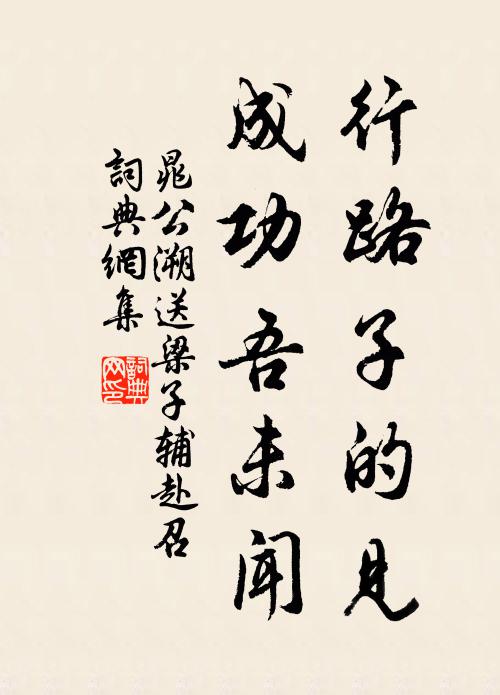 行路子的见
成功吾未闻
晁公溯送梁子辅赴召
詞典網集
詞典網印